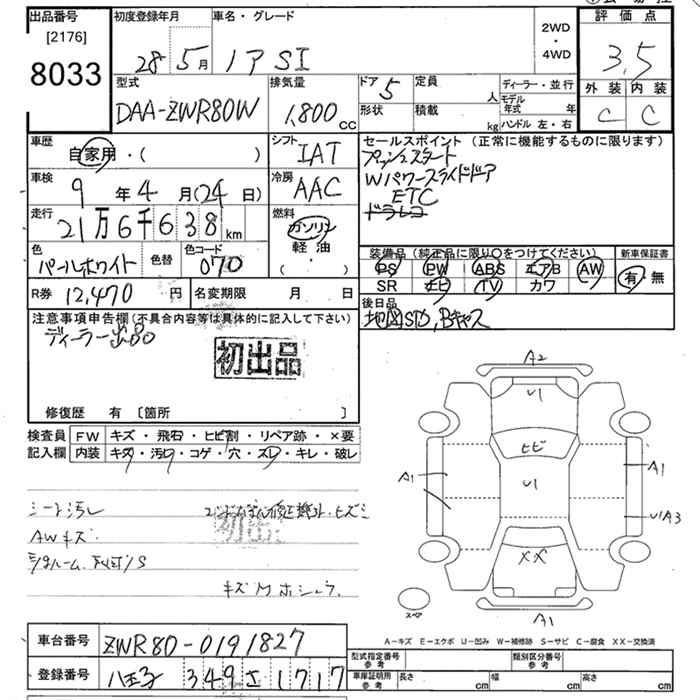 出品番号
[2176]
8033
初度登録年月
28 5月
車名・グレード
ノア SI
2WD
・
4WD
評価点
3.5
外装 内装
C C
型式
DAA-ZWR80W
排気量
1,800 CC
ドア 5
定員 人
形状 積載 kg
ディーラー・並行
モデル年式 年
ハンドル 左・右
車歴
自家用・( )
シフト
IAT
セールスポイント (正常に機能するものに限ります)
プッシュスタート
Wパワースライドドア
ETC
車検
9年4月(24日)
冷房
AAC
走行
21万6千638km
燃料
ガソリン
軽油
・( )
色
パールホワイト
色替
色コード
070
装備品(純正品に限り○をつけてください)
PS PW ABS エアB AW
SR ナビ TV カワ
新車保証書
有 無
R券 12,470円
名変期限 月 日
後日品
地図SD,Bキャス
注意事項申告欄(不具合内容等は具体的に記入して下さい)
ディーラー出品
初出品
修復歴 有 [箇所 ]
検査員
記入欄
FW キズ・飛石・ヒビ割・リペア跡・×要
内装 キズ・汚レ・コゲ・穴・スレ・キレ・破レ
シート汚レ
AWキズ
初出
A2
U1
ヒビ
A1
U1
A1
U1A3
XX
A1
スペア
A-キズ E-エクボ U-凹み W-補修跡 S-サビ C-腐食 XX-交換済
車台番号
ZWR80-0191827
登録番号
八王子 349 さ 1717
型式指定番号
参考
類別区分番号
参考
車庫証明用
参考
長さ cm 幅 cm 高さ cm